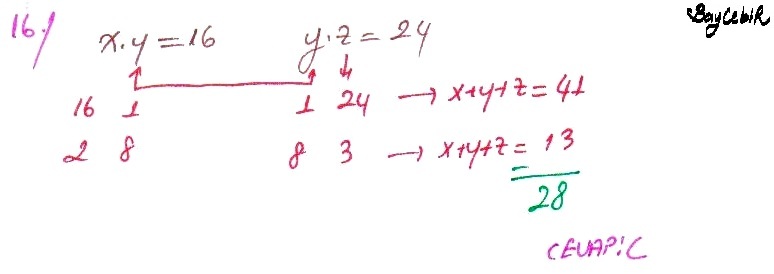 BayCebiR
16·) x·y = 16 y·z = 24
16 1 1 24 → x+y+z = 41
2 8 8 3 → x+y+z = 13
28
CEVAP: C